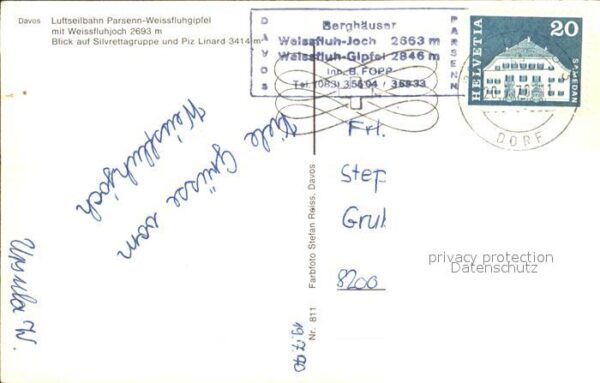 Davos Luftseilbahn Parsenn-Weissfluhgipfel
mit Weissfluhjoch 2693 m
Blick auf Silvrettagruppe und Piz Linard 3414 m
DAVOS
Berghäuser
Weissfluh-Joch 2663 m
Weissfluh-Gipfel 2846 m
Inh. B. FOPP
PARSENN
HELVETIA
20
S-CHEDAN
DORF
Viele Grüsse vom
Weissfluhjoch
Ursula W.
19.7.70
Nr. 811 Farbfoto Stefan Reiss, Davos
Frl.
Step
Grul
8200
privacy protection
Datenschutz